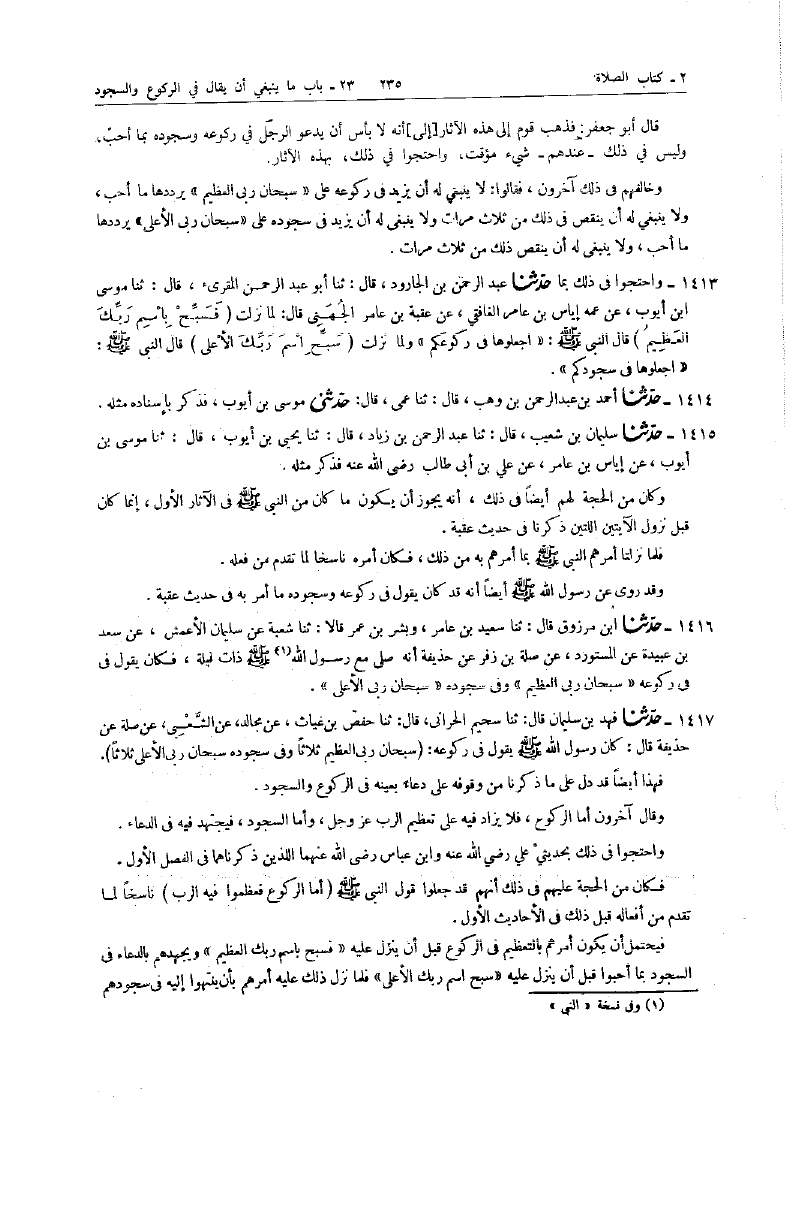 ٢ ـ كتاب الصلاة ٢٣٥ ٢٣ ـ باب ما ينبغي أن يقال في الركوع والسجود
قال أبو جعفر: فذهب قوم إلى هذه الآثار [إلى] أنه لا بأس أن يدعو الرجل في ركوعه وسجوده بما أحبّ،
وليس في ذلك ـ عندهم ـ شيء مؤقت، واحتجوا في ذلك، بهذه الآثار.
وخالفهم فى ذلك آخرون ، فقالوا: لا ينبغي له أن يزيد فى ركوعه على « سبحان ربى العظيم » يرددها ما أحب ،
ولا ينبغى له أن ينقص فى ذلك من ثلاث مرات ولا ينبغى له أن يزيد فى سجوده على «سبحان ربى الأعلى» يرددها
ما أحب ، ولا ينبغى له أن ينقص ذلك من ثلاث مرات .
١٤١٣ ـ واحتجوا فى ذلك بما حدّثنا عبد الرحمن بن الجارود ، قال : ثنا أبو عبد الرحمن المقرىء ، قال : ثنا موسى
ابن أيوب ، عن عمه إياس بن عامر الغافقي ، عن عقبة بن عامر الجُهَنِي قال: لما نزلت ( فَسَبِّحْ بِاسْمِ رَبِّكَ
العَظِيمِ ) قال النبي ﷺ : « اجعلوها فى ركوعكم » ولما نزلت ( سَبِّحِ اسْمَ رَبِّكَ الأعلى ) قال النبي ﷺ :
« اجعلوها فى سجودكم » .
١٤١٤ ـ حدّثنا أحمد بن عبدالرحمن بن وهب ، قال : ثنا عمى ، قال: حدّثنى موسى بن أيوب ، فذكر بإسناده مثله .
١٤١٥ ـ حدّثنا سليمان بن شعيب ، قال : ثنا عبد الرحمن بن زياد ، قال : ثنا يحيى بن أيوب ، قال : ثنا موسى بن
أيوب ، عن إياس بن عامر ، عن علي بن أبى طالب رضى الله عنه فذكر مثله .
وكان من الحجة لهم أيضاً فى ذلك ، أنه يجوز أن يكون ما كان من النبي ﷺ فى الآثار الأول ، إنما كان
قبل نزول الآيتين اللتين ذكرنا فى حديث عقبة .
فلما نزلتا أمرهم النبي ﷺ بما أمرهم به من ذلك ، فكان أمره ناسخا لما تقدم من فعله .
وقد روى عن رسول الله ﷺ أيضاً أنه قد كان يقول فى ركوعه وسجوده ما أمر به فى حديث عقبة .
١٤١٦ ـ حدّثنا ابن مرزوق قال : ثنا سعيد بن عامر ، وبشر بن عمر قالا : ثنا شعبة عن سليمان الأعمش ، عن سعد
بن عبيدة عن المستورد ، عن صلة بن زفر عن حذيفة أنه صلى مع رسول الله(١) ﷺ ذات ليلة ، فكان يقول فى
فى ركوعه « سبحان ربى العظيم » وفى سجوده « سبحان ربى الأعلى » .
١٤١٧ ـ حدّثنا فهد بن سليمان قال: ثنا سحيم الحرانى، قال: ثنا حفص بن غياث ، عن مجالد، عن الشَّعْبِي، عن صلة عن
حذيفة قال : كان رسول الله ﷺ يقول فى ركوعه: (سبحان ربى العظيم ثلاثاً وفى سجوده سبحان ربى الأعلى ثلاثاً).
فهذا أيضاً قد دل على ما ذكرنا من وقوفه على دعاء بعينه فى الركوع والسجود .
وقال آخرون أما الركوع ، فلا يزاد فيه على تعظيم الرب عز وجل ، وأما السجود ، فيجتهد فيه فى الدعاء .
واحتجوا فى ذلك بحديثيْ علي رضي الله عنه وابن عباس رضى الله عنهما اللذين ذكرناهما فى الفصل الأول .
فكان من الحجة عليهم فى ذلك أنهم قد جعلوا قول النبي ﷺ ( أما الركوع فعظموا فيه الرب ) ناسخاً لما
تقدم من أفعاله قبل ذلك فى الأحاديث الأول .
فيحتمل أن يكون أمرهم بالتعظيم فى الركوع قبل أن ينزل عليه « فسبح باسم ربك العظيم » ويجهدهم بالدعاء فى
السجود بما أحبوا قبل أن ينزل عليه «سبح اسم ربك الأعلى» فلما نزل ذلك عليه أمرهم بأن ينتهوا إليه فى سجودهم
(١) وفى نسخة « النبى »